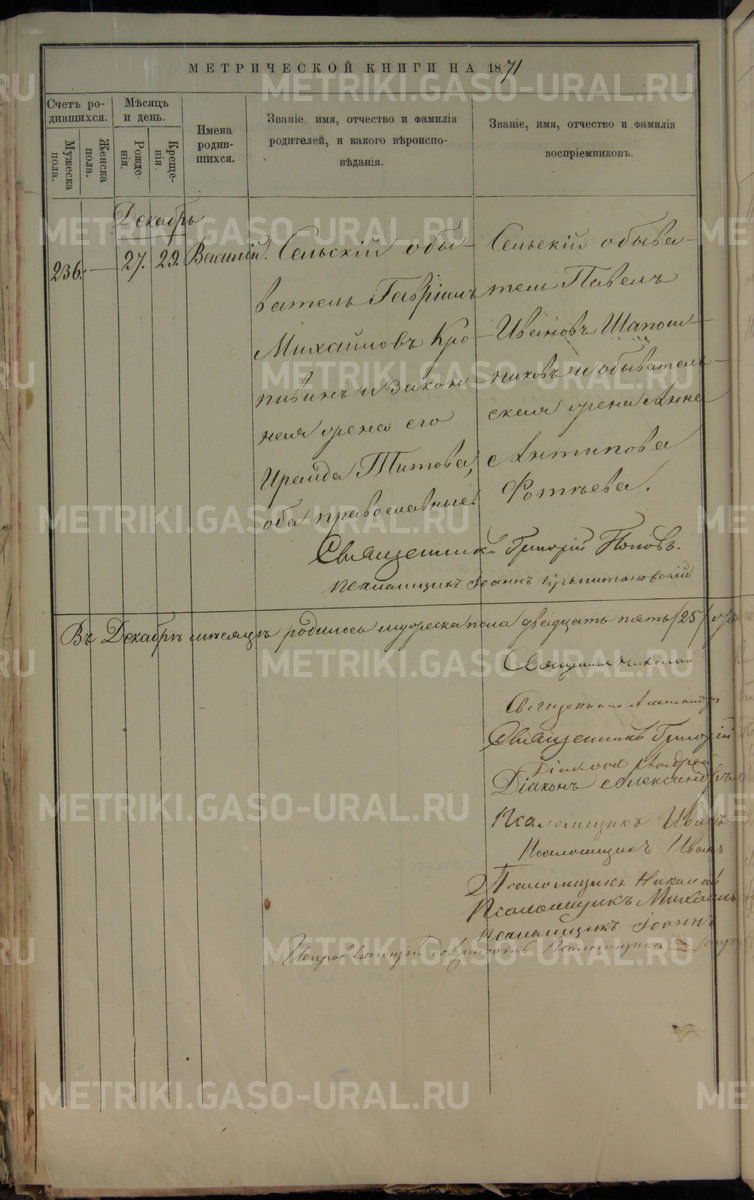 МЕТРИЧЕСКОЙ КНИГИ НА 1871
Счетъ ро-
дившихся.
Мужеска
пола.
Женска
пола.
Мѣсяцъ
и день.
Рожде-
нія.
Креще-
нія.
Имена
родив-
шихся.
Званіе, имя, отчество и фамилія
родителей, и какого вѣроиспо-
вѣданія.
Званіе, имя, отчество и фамилія
воспріемниковъ.
Декабрь
236.
—
27.
29.
Василій.
Сельскій обы-
ватель Гавріилъ
Михайловъ Кро-
пивинъ и закон-
ная жена его
Ираида Титова,
оба православные.
Сельскій обыва-
тель Павелъ
Ивановъ Шапош-
никовъ и обыватель-
ская жена Анна
Антипова
Фотѣева.
Священникъ Григорій Поповъ.
Псаломщикъ Іоаннъ
Въ Декабрѣ мѣсяцѣ родилось мужеска пола двадцать пять /25/
Священникъ Николай
Священникъ Александръ
Священникъ Григорій
Діаконъ Андрей
Діаконъ Александръ
Псаломщикъ Иванъ
Псаломщикъ Иванъ
Псаломщикъ Николай
Псаломщикъ Михаилъ
Псаломщикъ Іоаннъ
METRIKI.GASO-URAL.RU